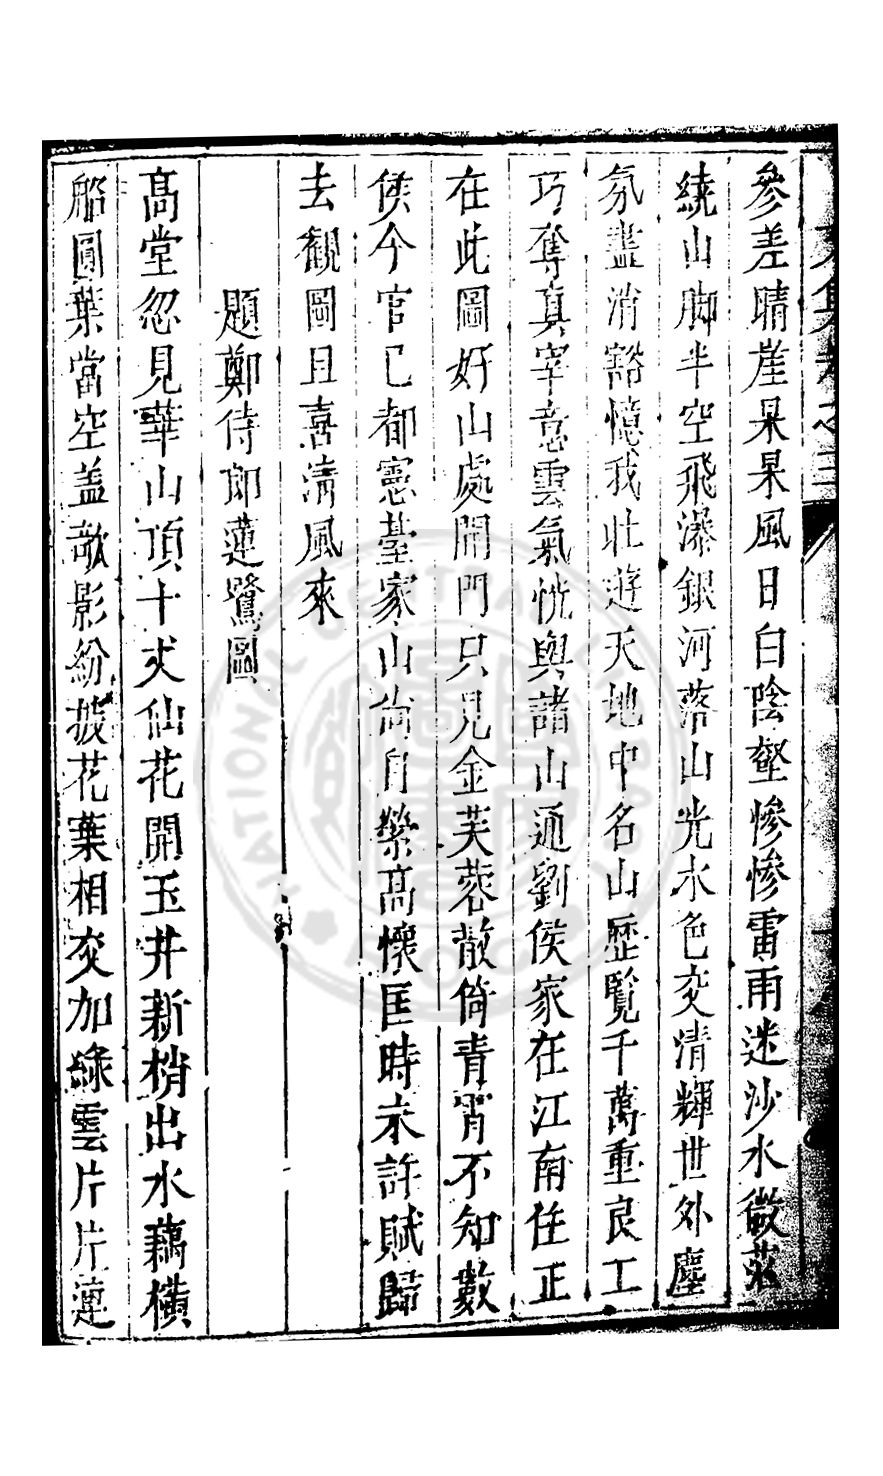 文集卷之三
參差晴崖杲杲風日白陰壑慘慘雷雨迷沙水微茫
繞山脚半空飛瀑銀河落山光水色交清輝世外塵
氛盡消豁憶我壯遊天地中名山歷覧千萬重良工
巧奪真宰意雲氣恍與諸山通劉侯家在江南住正
在此圖好山處開門只見金芙蓉散倚青霄不知數
侯今官已都憲臺家山尙自縈高懷匡時未許賦歸
去觀圖且喜清風來
題鄭侍郎蓮鷺圖
高堂忽見華山頂十丈仙花開玉井新梢出水藕橫
船圓葉當空盖欹影紛披花葉相交加綠雲片片蓮
NATIONAL CENTRAL LIBRARY